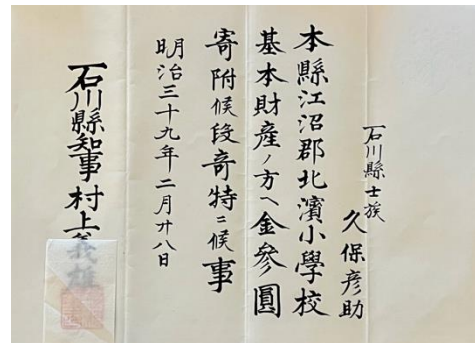 石川縣士族
久保彦助
本縣江沼郡北濱小學校
基本財産ノ方ヘ金參圓
寄附候段奇特ニ候事
明治三十九年二月廿八日
石川縣知事村上義雄